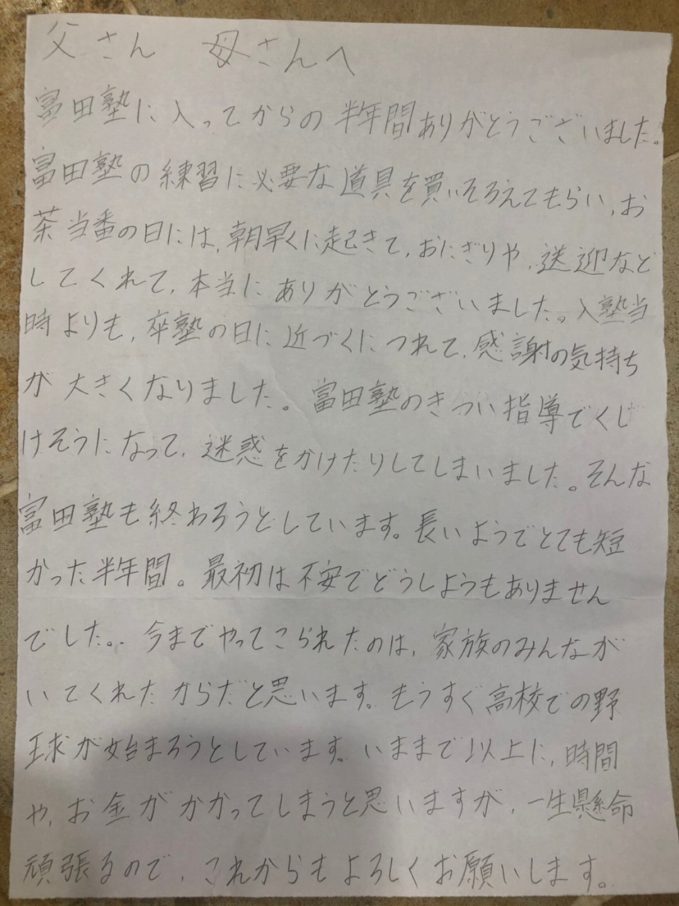 父さん 母さんへ
富田塾に入ってからの半年間ありがとうございました。
富田塾の練習に必要な道具を買いそろえてもらい、お
茶当番の日には、朝早くに起きて、おにぎりや、送迎など
してくれて、本当にありがとうございました。入塾当
時よりも、卒塾の日に近づくにつれて、感謝の気持ち
が大きくなりました。富田塾のきつい指導でくじ
けそうになって、迷惑をかけたりしてしまいました。そんな
富田塾も終わろうとしています。長いようでとても短
かった半年間。最初は不安でどうしようもありません
でした。今までやってこられたのは、家族のみんなが
いてくれたからだと思います。もうすぐ高校での野
球が始まろうとしています。いままで以上に、時間
や、お金がかかってしまうと思いますが、一生懸命
頑張るので、これからもよろしくお願いします。